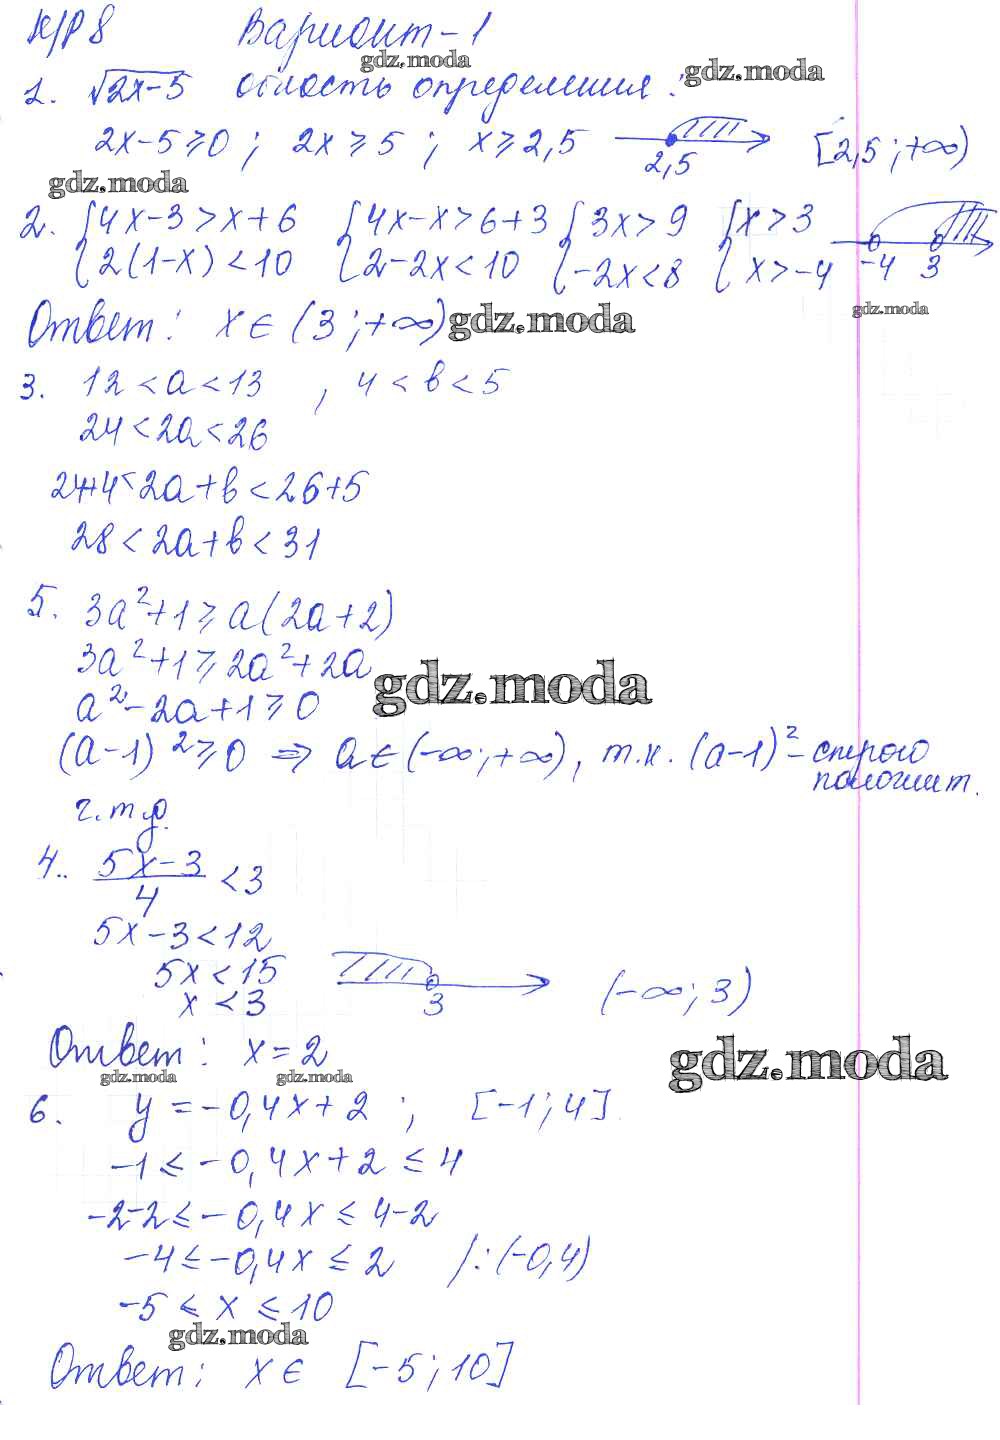 К/Р 8 Вариант-1
gdz.moda
1. √2x-5 область определения: gdz.moda
2x-5≥0; 2x≥5; x≥2,5 2,5 [2,5;+∞)
gdz.moda
2. {4x-3>x+6 {4x-x>6+3 {3x>9 {x>3
{2(1-x)<10 {2-2x<10 {-2x<8 {x>-4 -4 3
gdz.moda
Ответ: x∈(3;+∞) gdz.moda
3. 12<a<13, 4<b<5
24<2a<26
24+4<2a+b<26+5
28<2a+b<31
5. 3a²+1≥a(2a+2)
3a²+1≥2a²+2a
gdz.moda
a²-2a+1≥0
(a-1)²≥0 ⇒ a∈(-∞;+∞), т.к. (a-1)² - строго
положит.
ч.т.д.
4.. 5x-3/4 <3
5x-3<12
5x<15
x<3 3 (-∞;3)
Ответ: x=2
gdz.moda
gdz.moda gdz.moda
6. y=-0,4x+2; [-1;4].
-1≤-0,4x+2≤4
-2-2≤-0,4x≤4-2
-4≤-0,4x≤2 /:(-0,4)
-5≤x≤10
gdz.moda
Ответ: x∈ [-5;10]